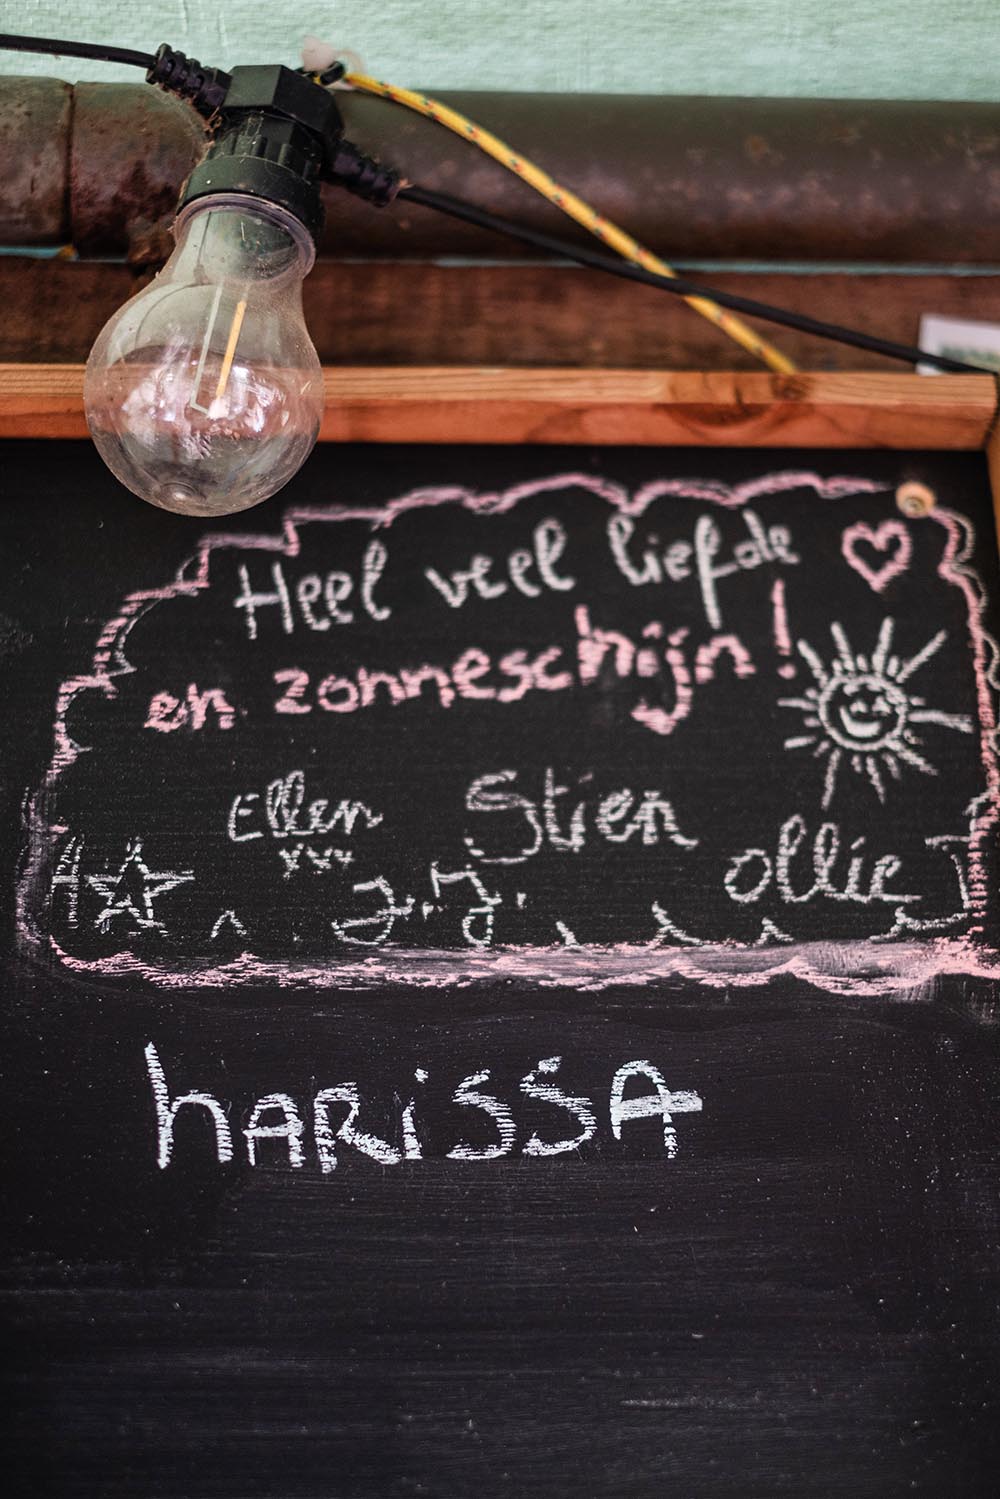 Heel veel liefde
en zonneschijn!
Ellen Stien
xxx
J.J. ollie
harissa